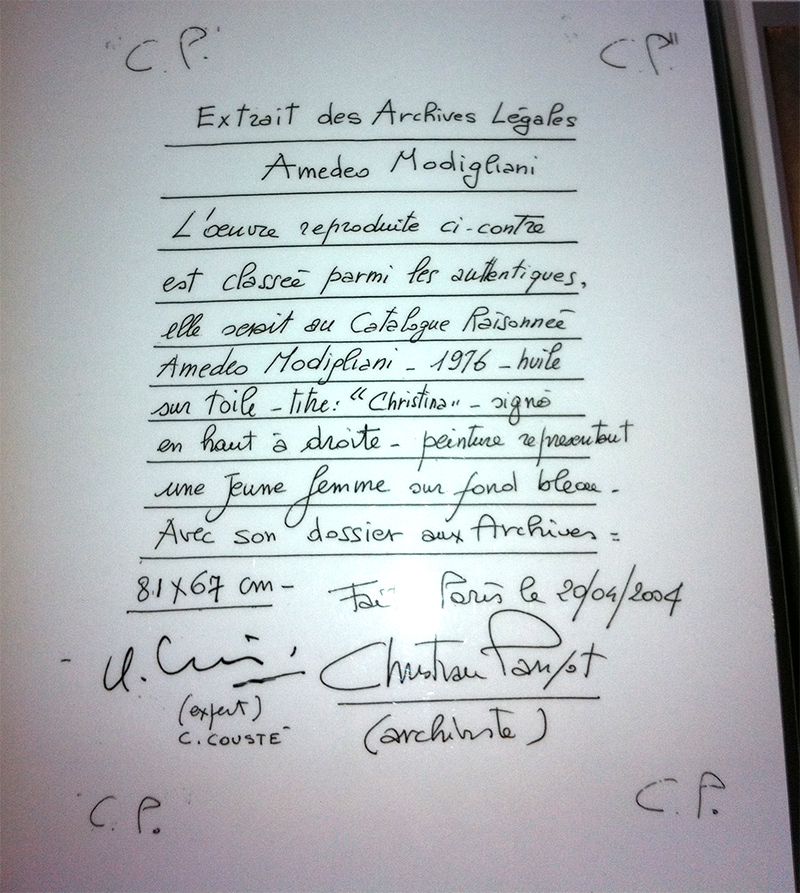 C. P. C. P.
Extrait des Archives Légales
Amedeo Modigliani
L'œuvre reproduite ci-contre
est classeé parmi les authentiques,
elle serait au Catalogue Raisonneé
Amedeo Modigliani - 1976 - huile
sur toile - titre: "Christina" - signé
en haut à droite - peinture representant
une jeune femme sur fond bleau -
Avec son dossier aux Archives =
81 X 67 cm - Fait Paris le 20/04/2004
Christian Parisot
(expert) (archiviste)
C. COUSTÉ
C. P. C. P.